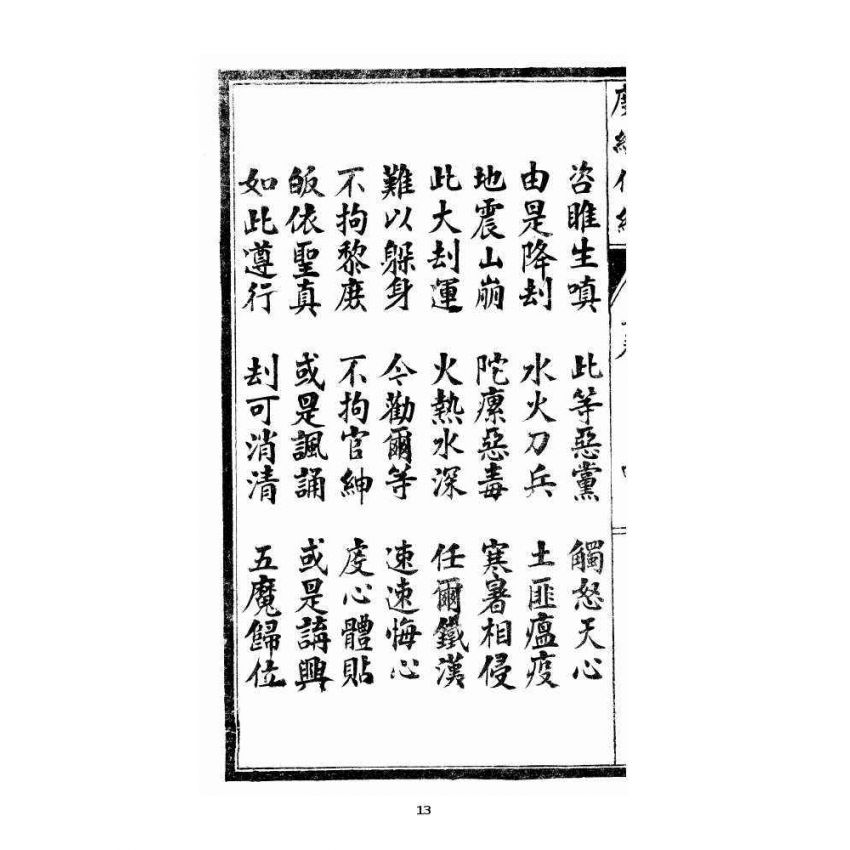 咨睢生嗔　此等惡黨　觸怒天心
由是降刦　水火刀兵　土匪瘟疫
地震山崩　陀瘰惡毒　寒暑相侵
此大刦運　火熱水深　任爾鐵漢
難以躲身　今勸爾等　速速悔心
不拘黎庶　不拘官紳　虔心體貼
皈依聖真　或是諷誦　或是講興
如此遵行　刦可消清　五魔歸位
13